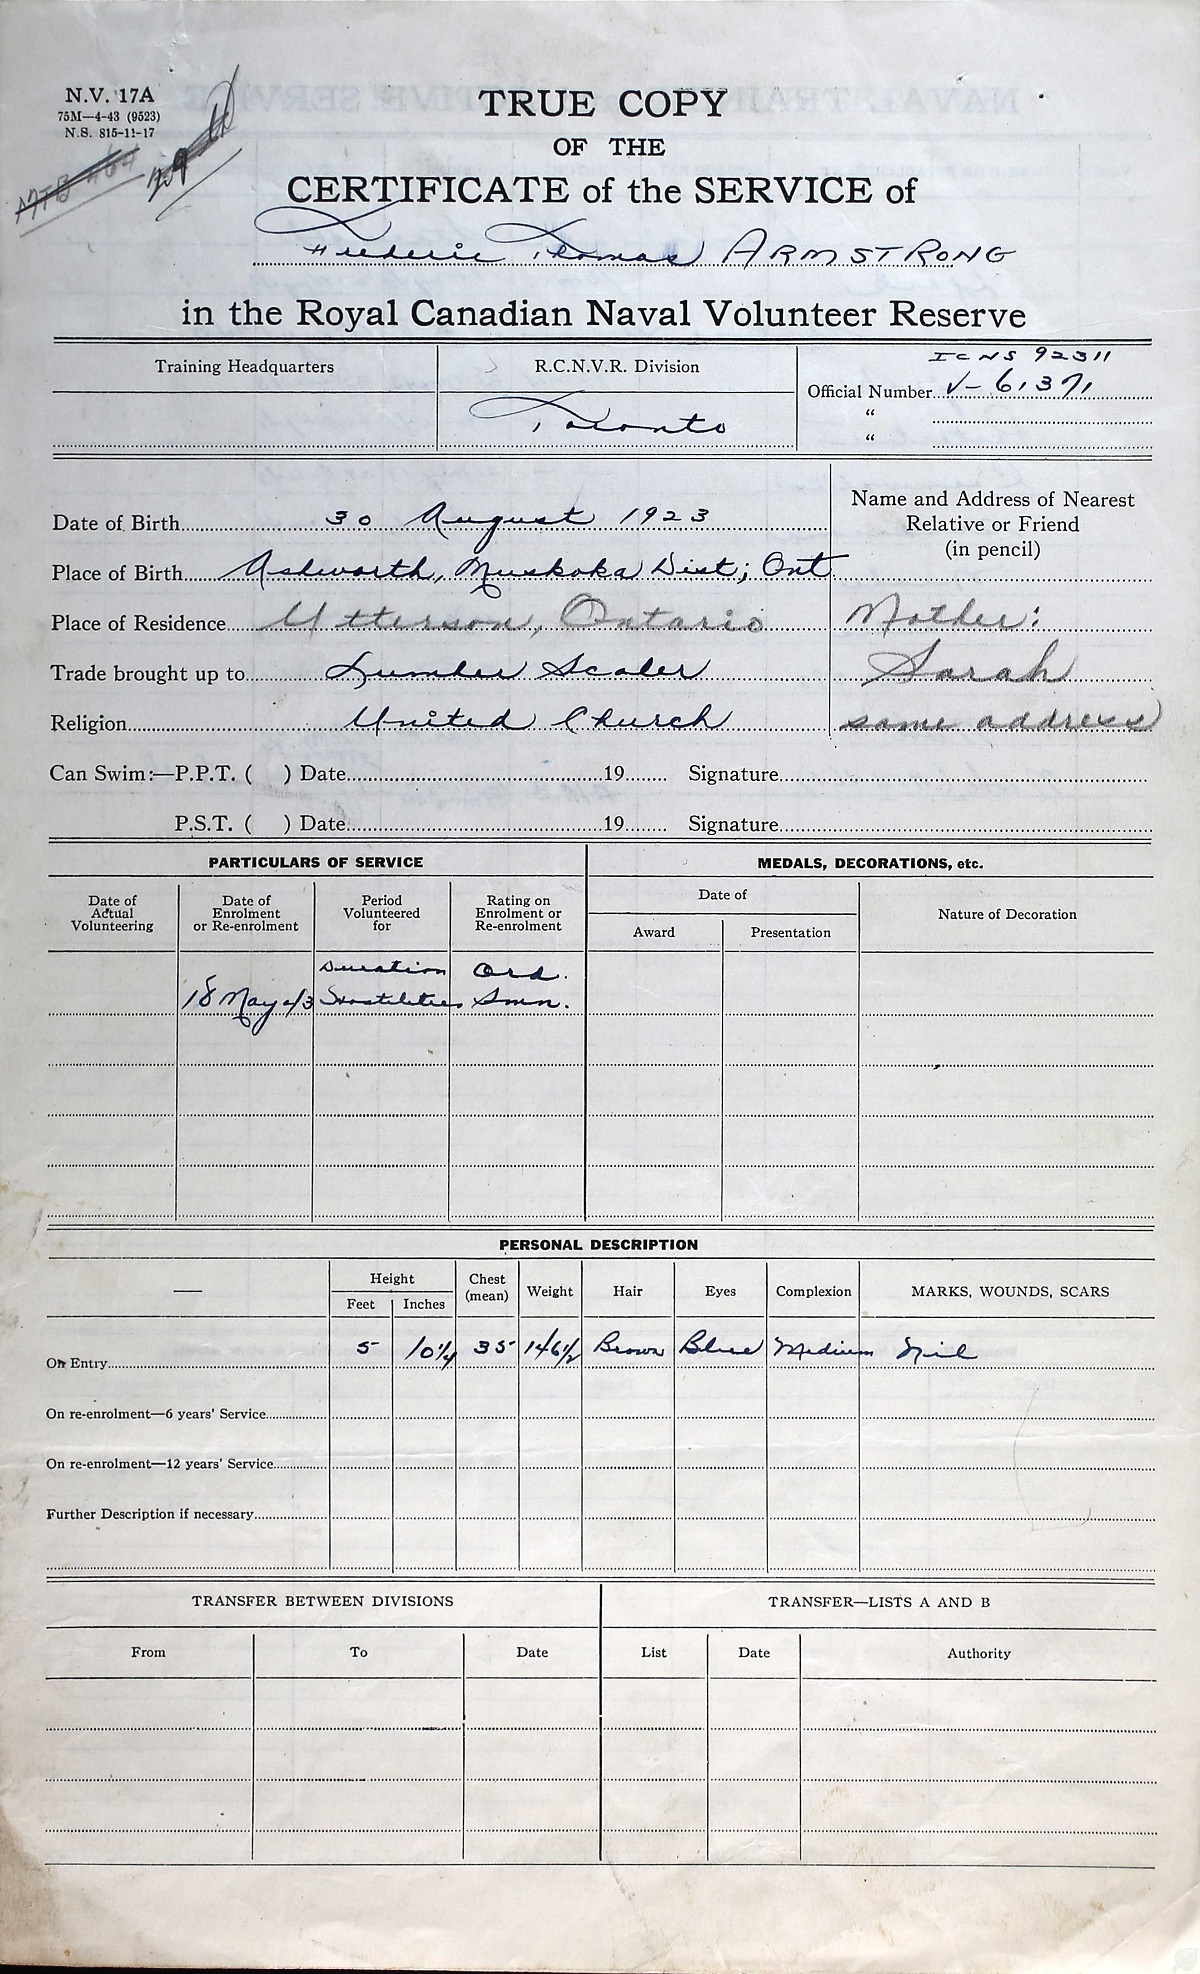 N.V. 17A
75M—4-43 (9523)
N.S. 815-11-17
MTB
TRUE COPY
OF THE
CERTIFICATE of the SERVICE of
Frederic Thomas ARMSTRONG
in the Royal Canadian Naval Volunteer Reserve
Training Headquarters
R.C.N.V.R. Division
Toronto
ICNS 92311
Official Number V-61371
“
“
Date of Birth 30 August 1923
Place of Birth Ashworth, Muskoka Dist; Ont
Place of Residence Utterson, Ontario
Trade brought up to Lumber Scaler
Religion United Church
Name and Address of Nearest
Relative or Friend
(in pencil)
Mother:
Sarah
same address
Can Swim:—P.P.T. ( ) Date 19 Signature
P.S.T. ( ) Date 19 Signature
PARTICULARS OF SERVICE
Date of Actual Volunteering
Date of Enrolment or Re-enrolment
Period Volunteered for
Rating on Enrolment or Re-enrolment
Duration Ord.
18 May 43 Hostilities Smn.
MEDALS, DECORATIONS, etc.
Date of
Award Presentation
Nature of Decoration
PERSONAL DESCRIPTION
— Height Chest (mean) Weight Hair Eyes Complexion MARKS, WOUNDS, SCARS
Feet Inches
On Entry 5 10¼ 35 146½ Brown Blue Medium Nil
On re-enrolment—6 years' Service
On re-enrolment—12 years' Service
Further Description if necessary
TRANSFER BETWEEN DIVISIONS
From To Date
TRANSFER—LISTS A AND B
List Date Authority